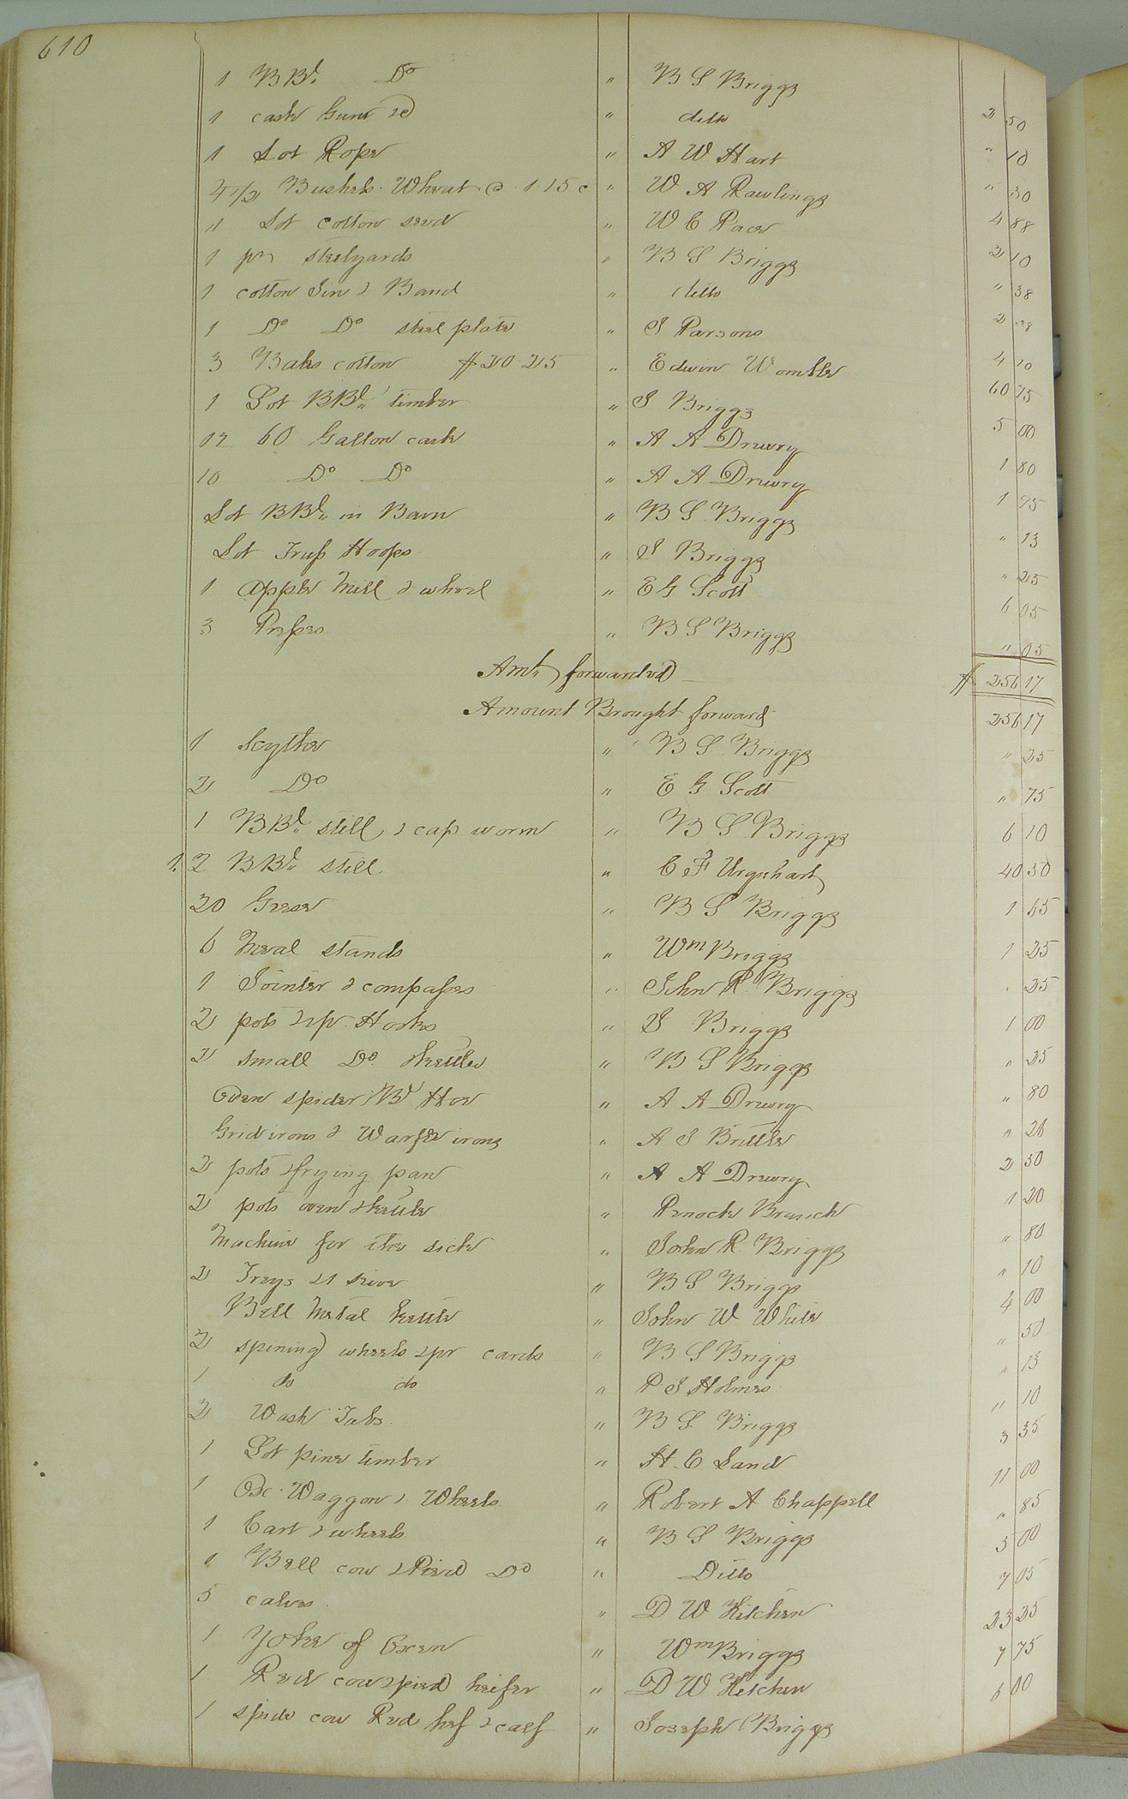 610
1 BBl. Do " B S Briggs
1 cask Gum &c " ditto 2 50
1 Lot Rope " A W Hart " 10
4 1/2 Bushels Wheat @ 1 15 c " W A Rawlings " 30
" Lot cotton seed " W C Pace 4 88
1 pr stilyards " B S Briggs 2 10
1 cotton Gin & Band " ditto " 38
1 Do Do steel plate " S Parsons 2
3 Bales cotton $20.25 " Edwin Womble 4 10
1 Lot BBl. timber " S Briggs 60 75
12 60 Gallon cask " A A Drewry 5 00
10 Do Do " A A Drewry 1 80
Lot BBl. in Barn " B S Briggs 1 95
Lot Truss Hoops " S Briggs " 13
1 apple Mill & wheel " E G Scott " 25
3 Presses " B S Briggs 6 05
" 05
Amt. forwarded $ 256 17
Amount Brought forward 256 17
1 Scythe " B S Briggs " 25
2 Do " E G Scott " 75
1 BBl. still & cap worm " B S Briggs 6 10
1. 2 BBl. still " C F Urquhart 40 50
20 Geese " B S Briggs 1 45
6 Meal stands " Wm Briggs 1 25
1 Jointer & compasses " John R Briggs " 25
2 pots & pr Hooks " S Briggs 1 00
2 small Do kettles " B S Briggs " 25
Oven spider Bd Hoe " A A Drewry " 80
Gridirons & Waffle irons " A S Brittle " 26
2 pots & frying pan " A A Drewry 2 50
2 pots oven & kettle " Branch 1 20
Machine for sick " John R Briggs " 80
2 Trays & 1 sieve " B S Briggs " 10
Bell Metal kettle " John W White 4 00
2 spining wheels & pr cards " B S Briggs " 50
1 do do " P S Holmes " 13
2 Wash Tubs " B S Briggs " 10
1 Lot pine timber " H. C. Land 3 35
1 Ox Waggon & Wheels " Robert A Chappell 11 00
1 Cart & wheels " B S Briggs " 85
1 Bell cow & Pied Do " Ditto 5 00
5 calves " D W Kitchen 7 05
1 Yoke of Oxen " Wm Briggs 23 25
1 Red cow & pied heifer " D W Kitchen 7 75
1 cow Red hef & calf " Joseph Briggs 6 00